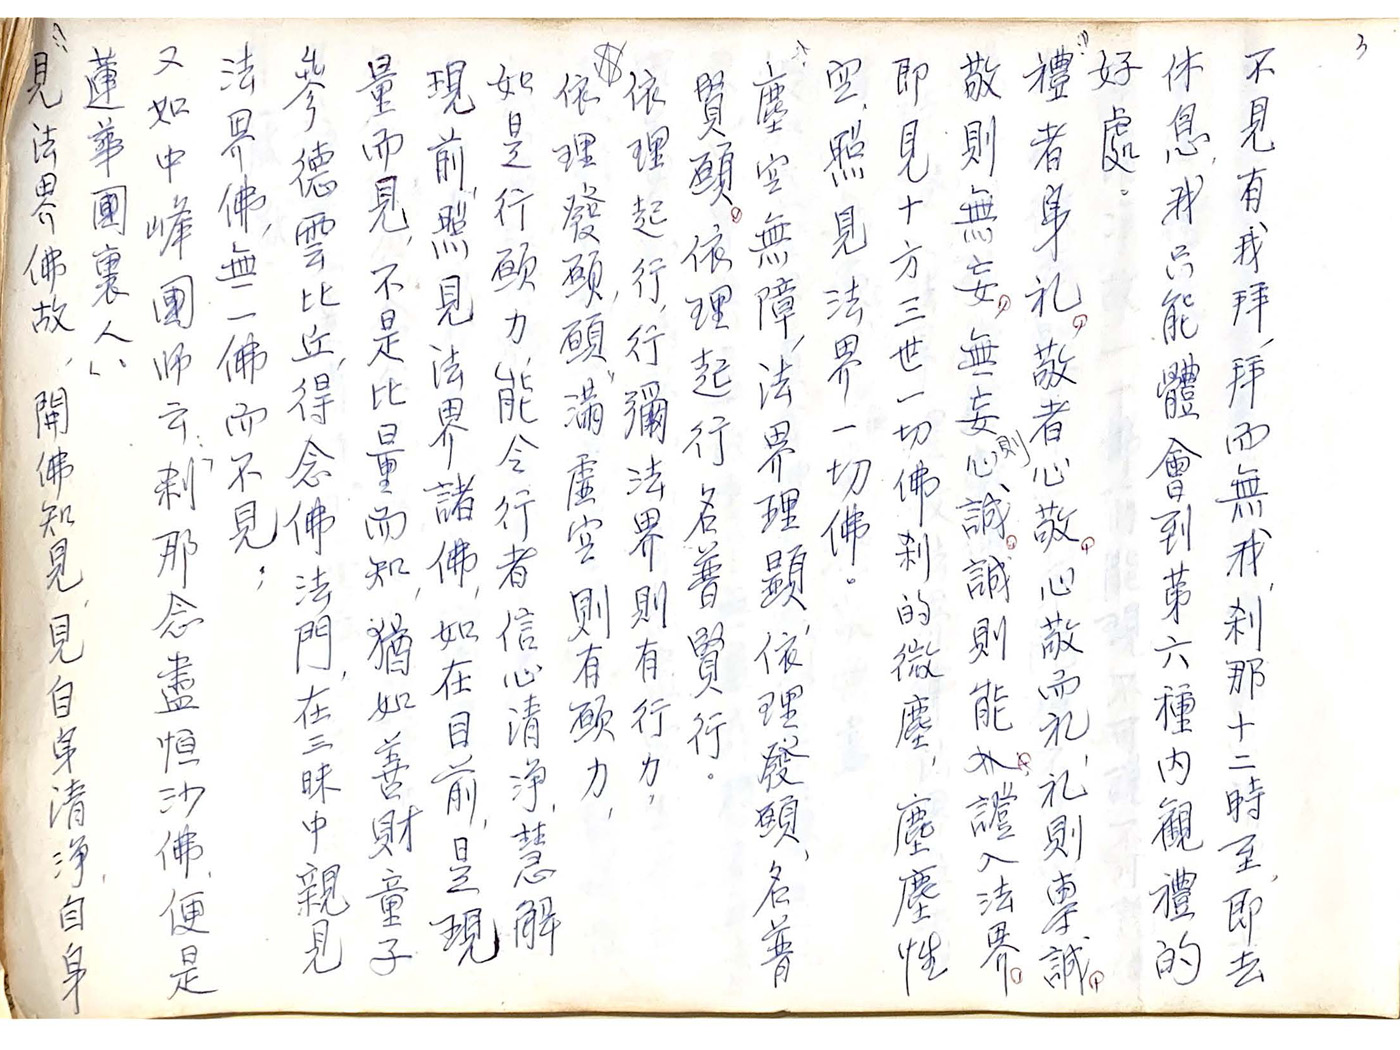 3
不見有我拜，拜而無我，刹那十二時至，即去
休息，我只能體會到第六種内觀禮的
好處。
禮者身礼，敬者心敬，心敬而礼，礼則專誠，
敬則無妄，無妄則心誠，誠則能證入法界，
即見十方三世一切佛刹的微塵，塵塵性
空，照見法界一切佛。
塵空無障，法界理顯，依理發願，名普
賢願。依理起行名普賢行。
依理起行，行彌法界則有行力，
依理發願，願滿虛空則有願力，
如是行願力，能令行者信心清净，慧解
現前，照見法界諸佛，如在目前，是現
量而見，不是比量而知，猶如善財童子
參德雲比丘，得念佛法門，在三昧中親見
法界佛，無一佛而不見；
又如中峰國师云：刹那念盡恒沙佛，便是
蓮華國裏人，
見法界佛故，開佛知見，見自身清净，自身